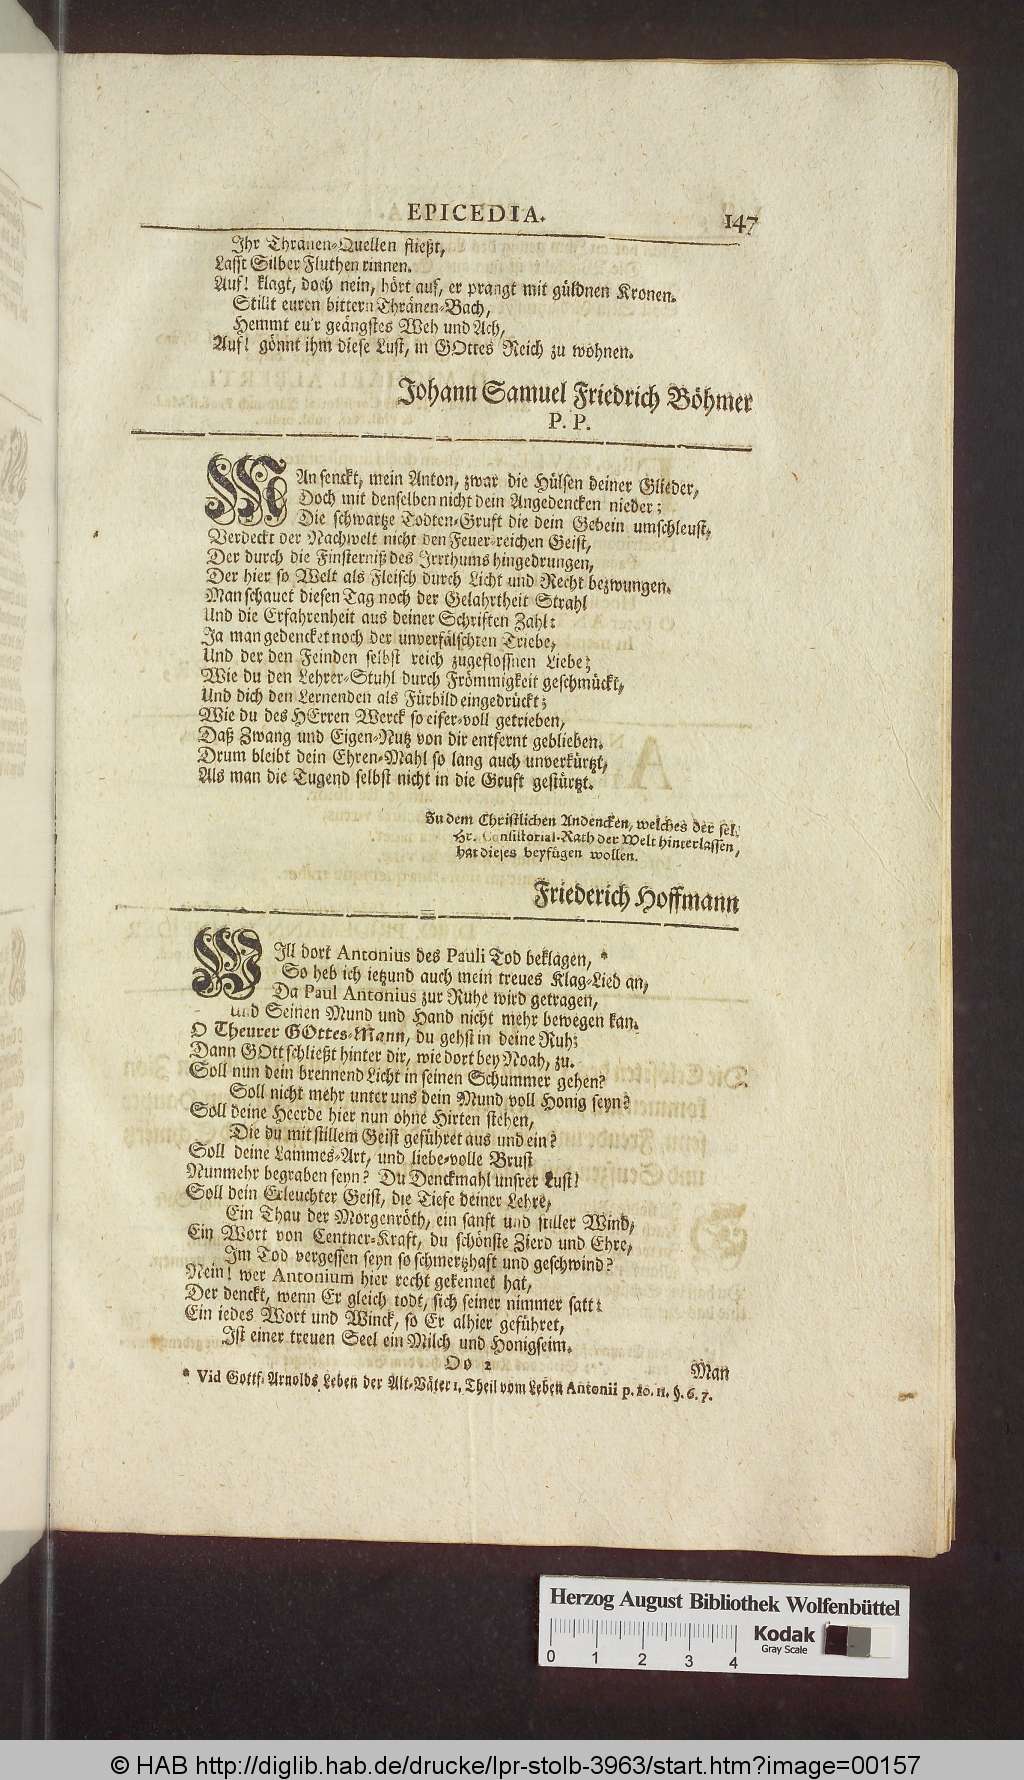 EPICEDIA. 147
Ihr Thränen-Quellen fließt,
Lasst Silber Fluthen rinnen.
Auf! klagt, doch nein, hört auf, er prangt mit güldnen Kronen.
Stillt euren bittern Thränen-Bach,
Hemmt eu'r geängstes Weh und Ach,
Auf! gönnt ihm diese Lust, in GOttes Reich zu wohnen.
Johann Samuel Friedrich Böhmer
P. P.
MAn senckt, mein Anton, zwar die Hülsen deiner Glieder,
Doch mit denselben nicht dein Angedencken nieder;
Die schwartze Todten-Gruft die dein Gebein umschleust,
Verdeckt der Nachwelt nicht den Feuer-reichen Geist,
Der durch die Finsterniß des Irrthums hingedrungen,
Der hier so Welt als Fleisch durch Licht und Recht bezwungen.
Man schauet diesen Tag noch der Gelahrtheit Strahl
Und die Erfahrenheit aus deiner Schriften Zahl:
Ja man gedencket noch der unverfälschten Triebe,
Und der den Feinden selbst reich zugeflossnen Liebe;
Wie du den Lehrer-Stuhl durch Frömmigkeit geschmückt,
Und dich den Lernenden als Fürbild eingedrückt;
Wie du des HErren Werck so eifer-voll getrieben,
Daß Zwang und Eigen-Nutz von dir entfernt geblieben.
Drum bleibt dein Ehren-Mahl so lang auch unverkürtzt,
Als man die Tugend selbst nicht in die Gruft gestürtzt.
Zu dem Christlichen Andencken, welches der sel.
Hr. Consistorial-Rath der Welt hinterlassen,
hat dieses beyfügen wollen.
Friederich Hoffmann
WIll dort Antonius des Pauli Tod beklagen, *
So heb ich ietzund auch mein treues Klag-Lied an,
Da Paul Antonius zur Ruhe wird getragen,
Und Seinen Mund und Hand nicht mehr bewegen kan.
O Theurer GOttes-Mann, du gehst in deine Ruh;
Dann GOtt schließt hinter dir, wie dort bey Noah, zu.
Soll nun dein brennend Licht in seinen Schummer gehen?
Soll nicht mehr unter uns dein Mund voll Honig seyn?
Soll deine Heerde hier nun ohne Hirten stehen,
Die du mit stillem Geist geführet aus und ein?
Soll deine Lammes-Art, und liebe-volle Brust
Nunmehr begraben seyn? Du Denckmahl unsrer Lust!
Soll dein Erleuchter Geist, die Tiefe deiner Lehre,
Ein Thau der Morgenröth, ein sanft und stiller Wind,
Ein Wort von Centner-Kraft, du schönste Zierd und Ehre,
Im Tod vergessen seyn so schmertzhaft und geschwind?
Nein! wer Antonium hier recht gekennet hat,
Der denckt, wenn Er gleich todt, sich seiner nimmer satt:
Ein iedes Wort und Winck, so Er alhier geführet,
Ist einer treuen Seel ein Milch und Honigseim.
Oo 2 Man
* Vid Gottf. Arnolds Leben der Alt-Väter 1. Theil vom Leben Antonii p. 10. 11. §. 6. 7.
Herzog August Bibliothek Wolfenbüttel
0 1 2 3 4
Kodak
Gray Scale
© HAB http://diglib.hab.de/drucke/lpr-stolb-3963/start.htm?image=00157